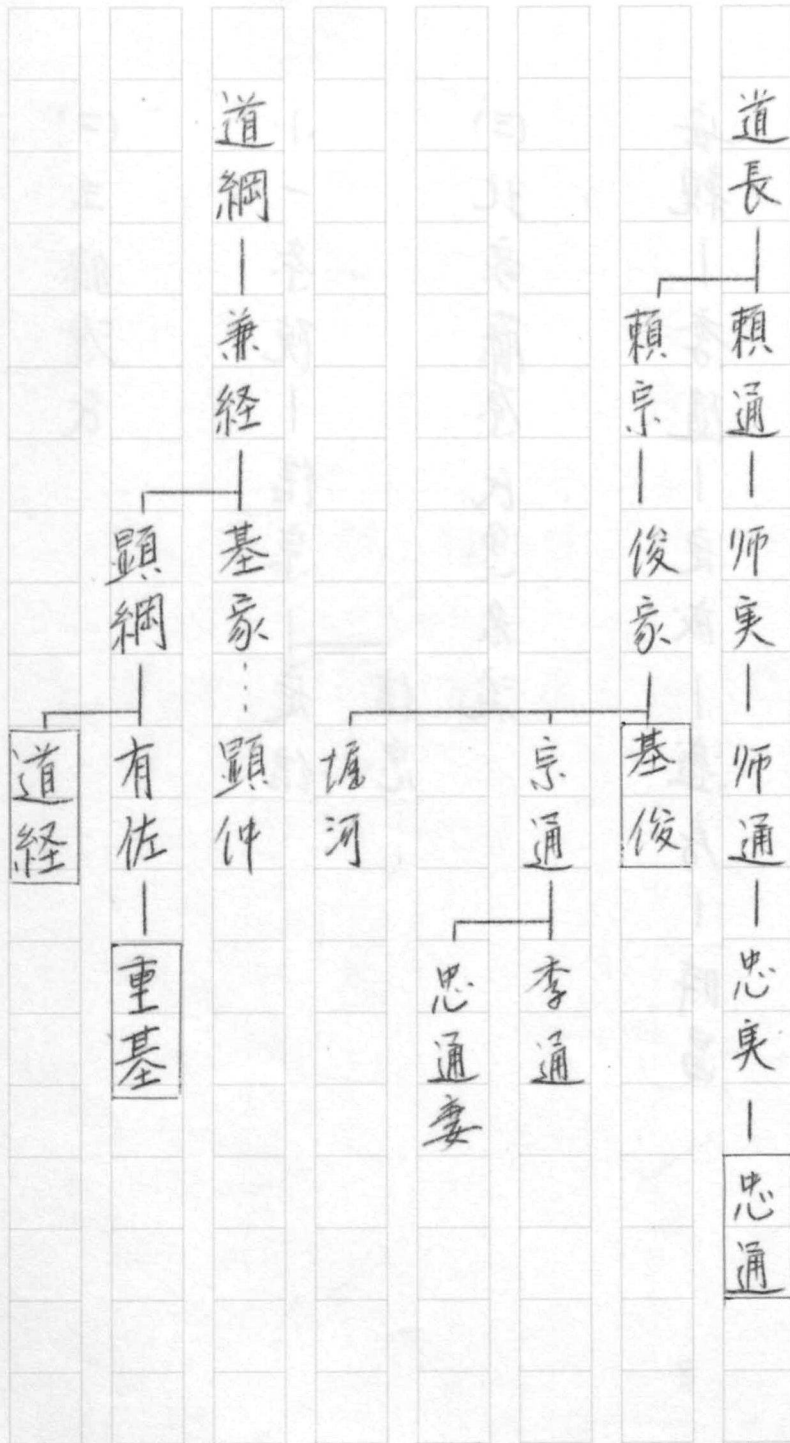 道長―頼通―師実―師通―忠実―忠通
頼宗―俊家―基俊
宗通―季通
忠通妻
堀河
道綱―兼経―基家…顕仲
顕綱―有佐―重基
道経